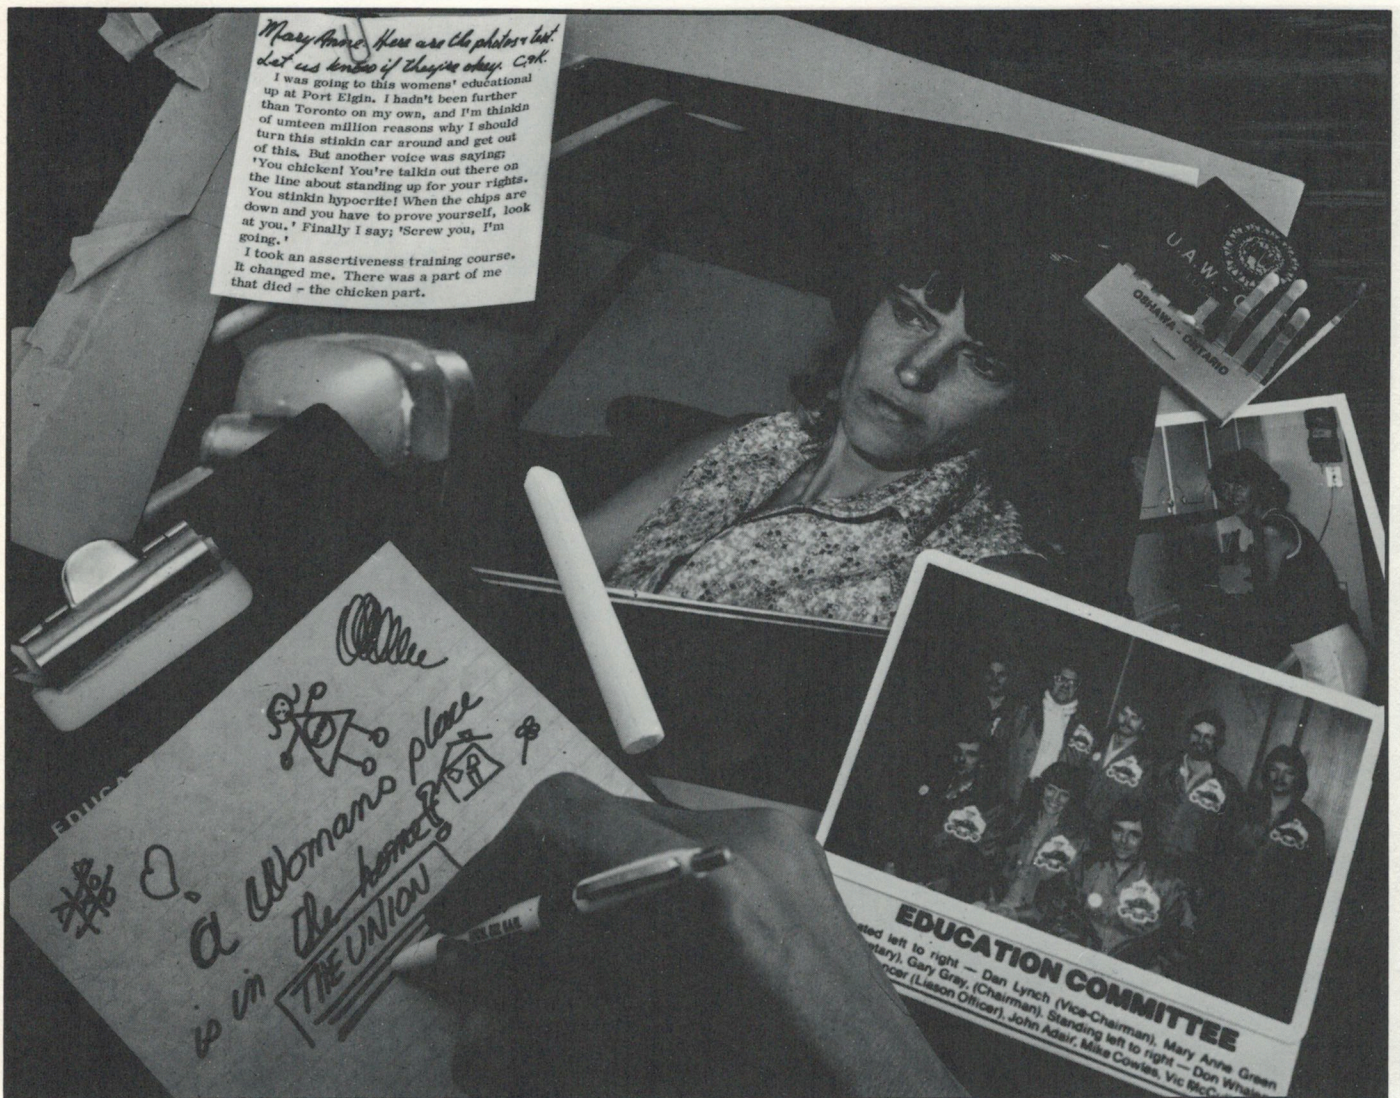 Mary Anne Here are the photos & text.
Let us know if they're okay. C&K.
I was going to this womens' educational
up at Port Elgin. I hadn't been further
than Toronto on my own, and I'm thinkin
of umteen million reasons why I should
turn this stinkin car around and get out
of this. But another voice was saying;
'You chicken! You're talkin out there on
the line about standing up for your rights.
You stinkin hypocrite! When the chips are
down and you have to prove yourself, look
at you.' Finally I say; 'Screw you, I'm
going.'
I took an assertiveness training course.
It changed me. There was a part of me
that died - the chicken part.
U.A.W.
OSHAWA - ONTARIO
EDUCAT
a womans place
is in the home
THE UNION
EDUCATION COMMITTEE
ated left to right — Dan Lynch (Vice-Chairman), Mary Anne Green
etary), Gary Gray, (Chairman). Standing left to right — Don Whale
ncer (Liason Officer), John Adair, Mike Cowles, Vic McC